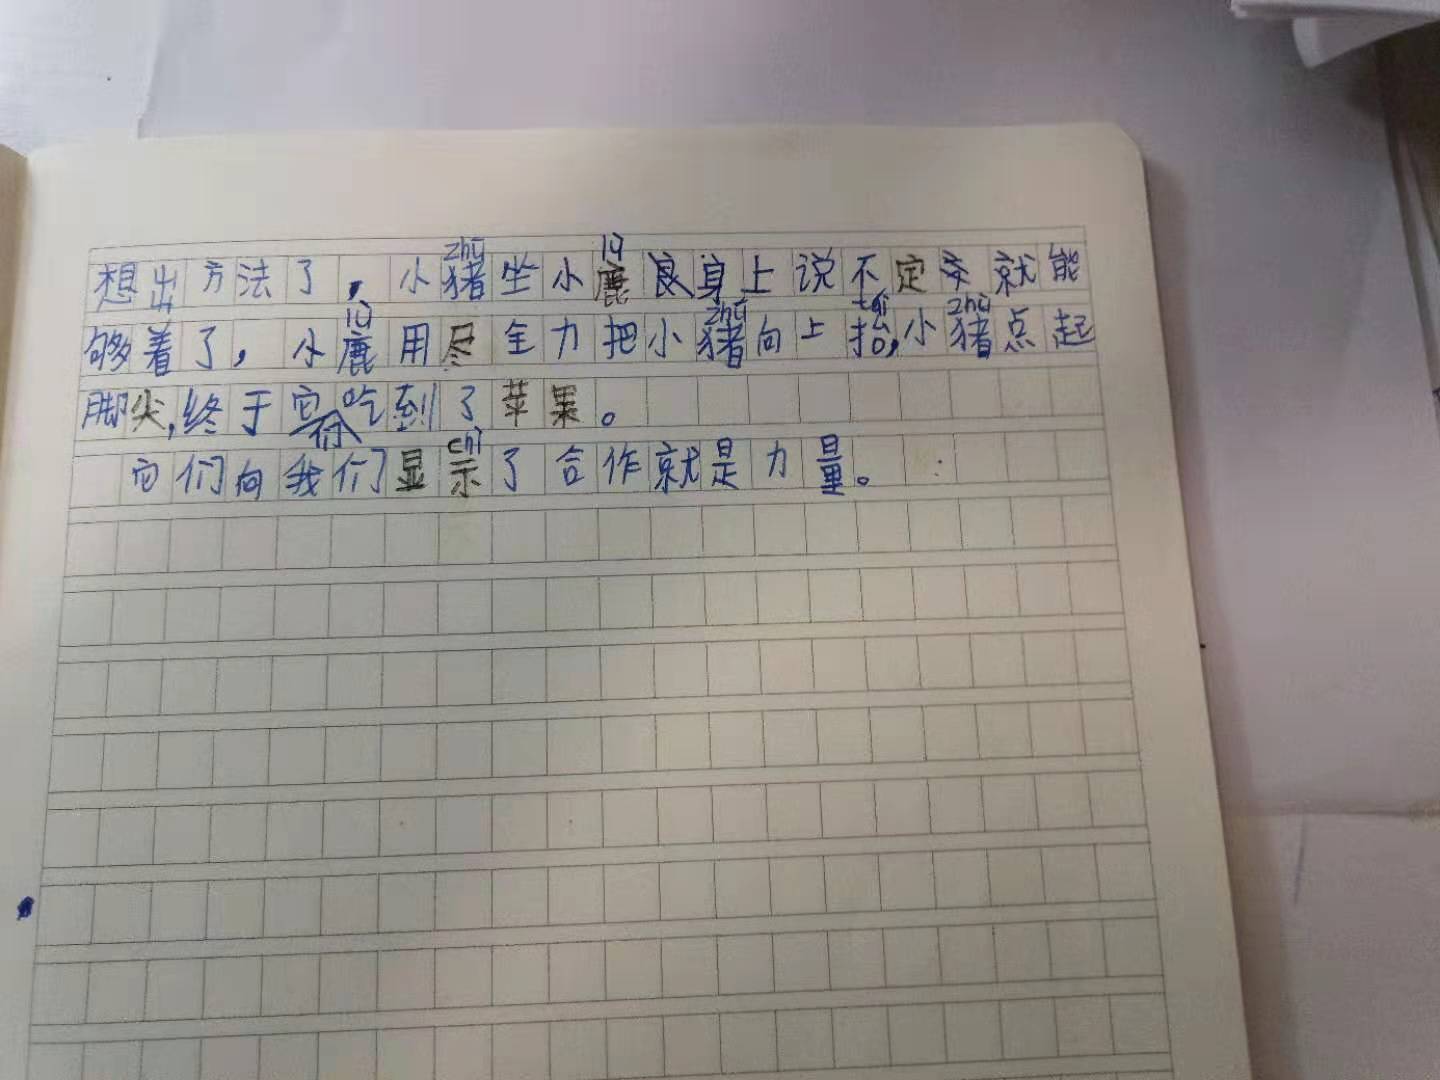 zhū lù
想出方法了，小猪坐小鹿良身上说不定就能
lù zhū tái zhū
够着了，小鹿用尽全力把小猪向上抬，小猪点起
脚尖，终于它们吃到了苹果。
chì
它们向我们显示了合作就是力量。